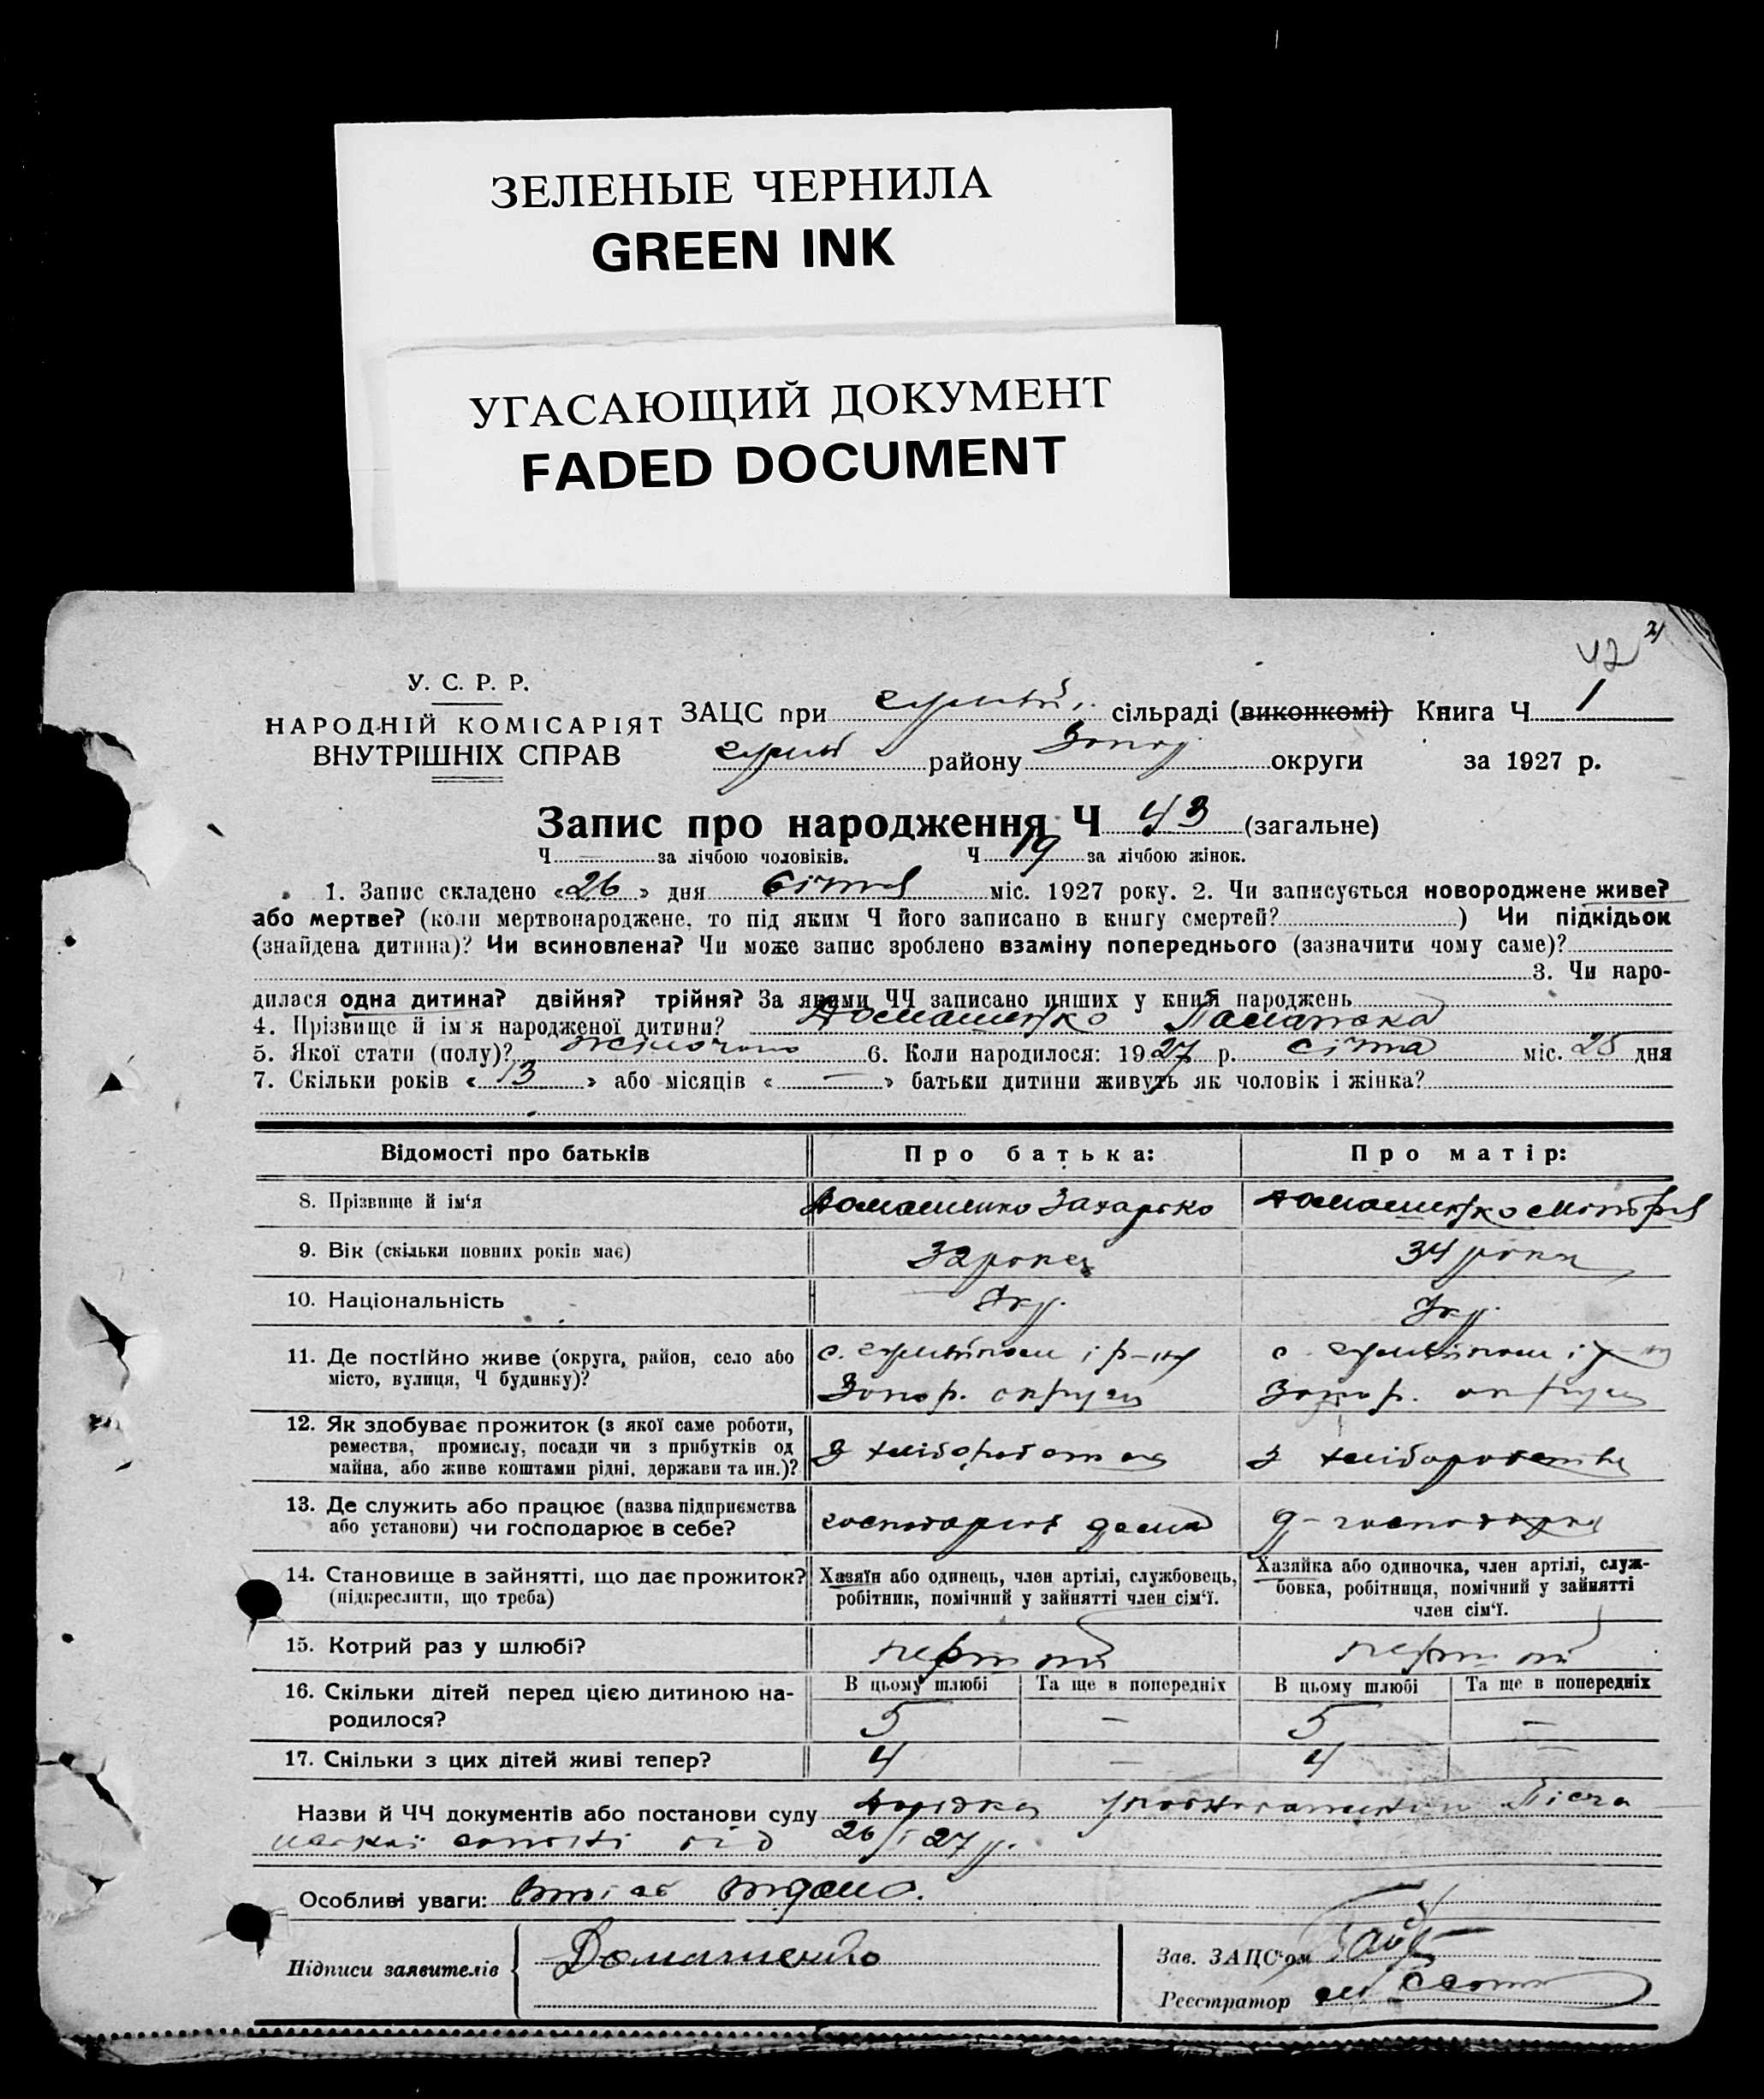 ЗЕЛЕНЫЕ ЧЕРНИЛА
GREEN INK
УГАСАЮЩИЙ ДОКУМЕНТ
FADED DOCUMENT
42
У. С. Р. Р.
НАРОДНІЙ КОМІСАРІЯТ
ВНУТРІШНІХ СПРАВ
ЗАЦС при сільраді (виконкомі) Книга Ч 1
району округи за 1927 р.
Запис про народження Ч 43 (загальне)
Ч за лічбою чоловіків. Ч 19 за лічбою жінок.
1. Запис складено «26» дня Січня міс. 1927 року. 2. Чи записується новороджене живе?
або мертве? (коли мертвонароджене, то під яким Ч його записано в книгу смертей? ) Чи підкідьок
(знайдена дитина)? Чи всиновлена? Чи може запис зроблено взаміну попереднього (зазначити чому саме)?
3. Чи наро-
дилася одна дитина? двійня? трійня? За якими ЧЧ записано инших у книзі народжень
4. Прізвище й ім'я народженої дитини? Домашенко
5. Якої стати (полу)? жіночого 6. Коли народилося: 1927 р. січня міс. 25 дня
7. Скільки років «13» або місяців «—» батьки дитини живуть як чоловік і жінка?
Відомості про батьків Про батька: Про матір:
8. Прізвище й ім'я Домашенко Захарько Домашенко Мотря
9. Вік (скільки повних років має) 32 роки 34 роки
10. Національність Укр. Укр.
11. Де постійно живе (округа, район, село або
місто, вулиця, Ч будинку)?
Запор. округи Запор. округи
12. Як здобуває прожиток (з якої саме роботи,
ремества, промислу, посади чи з прибутків од
майна, або живе коштами рідні, держави та ин.)? З хліборобства З хліборобства
13. Де служить або працює (назва підприємства
або установи) чи господарює в себе? господарює дома
14. Становище в зайнятті, що дає прожиток?
(підкреслити, що треба)
Хазяїн або одинець, член артілі, службовець,
робітник, помічний у зайнятті член сім'ї.
Хазяйка або одиночка, член артілі, служ-
бовка, робітниця, помічний у зайнятті
член сім'ї.
15. Котрий раз у шлюбі? перший перший
16. Скільки дітей перед цією дитиною на-
родилося?
В цьому шлюбі Та ще в попередніх В цьому шлюбі Та ще в попередніх
5 — 5 —
17. Скільки з цих дітей живі тепер? 4 — 4 —
Назви й ЧЧ документів або постанови суду Довідка
від 26/I 27 р.
Особливі уваги: видано.
Підписи заявителів Домашенко
Зав. ЗАЦС'ом
Реєстратор